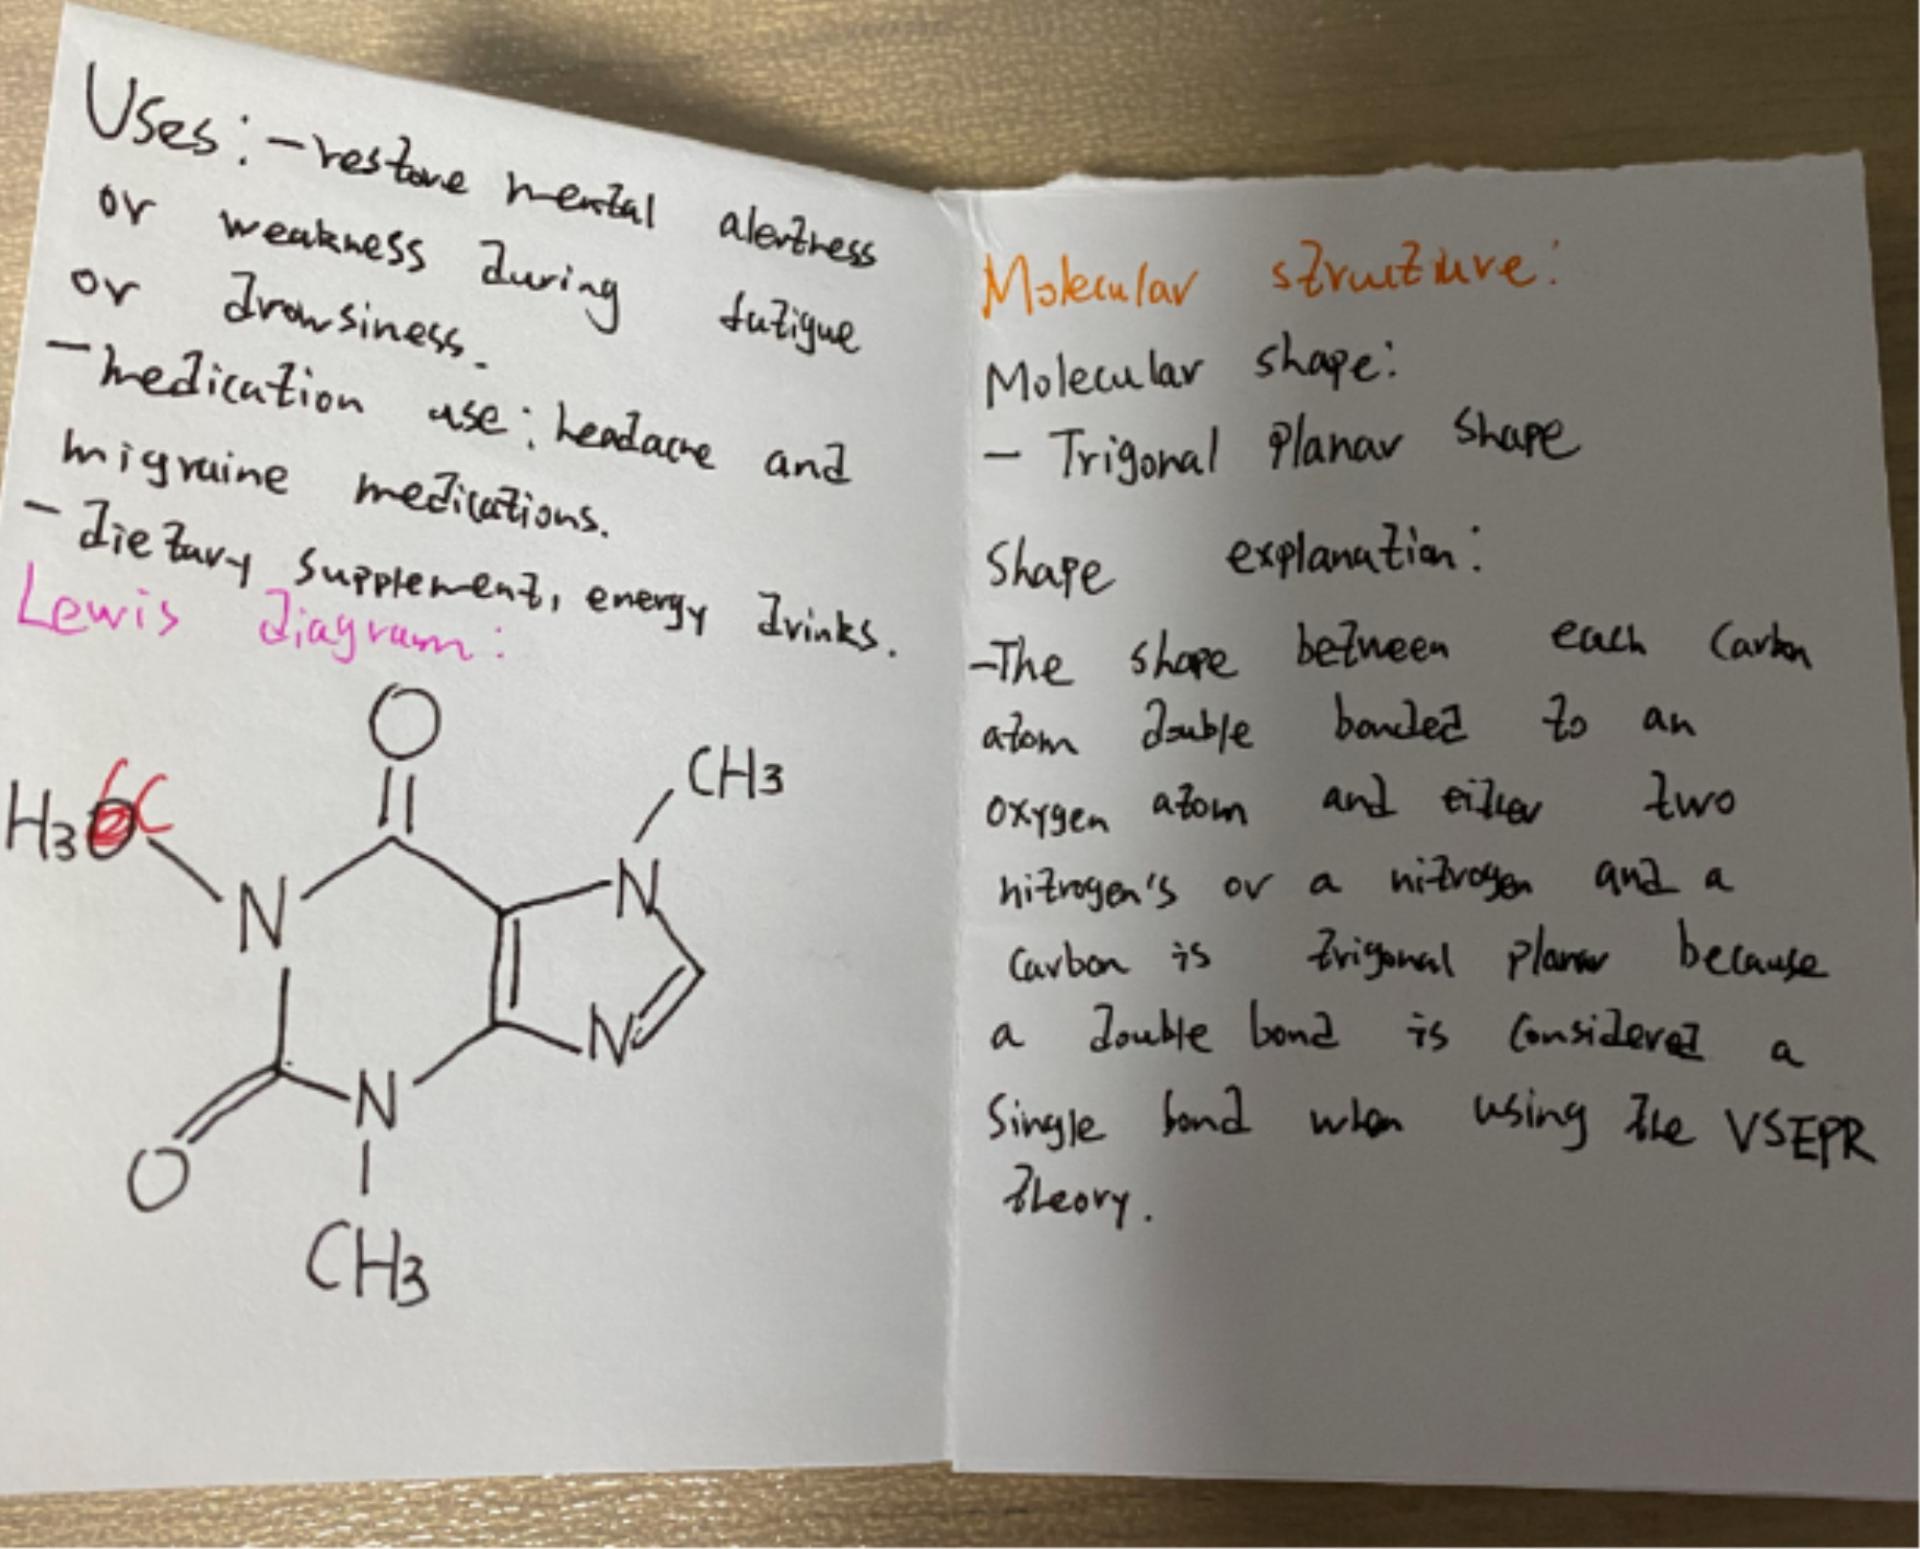 Uses: - restore mental alertness
or weakness during fatigue
or drowsiness.
- medication use: headache and
migraine medications.
- dietary supplement, energy drinks.
Lewis diagram:
O
CH3
H3C
N
N
N
N
O
CH3
Molecular structure:
Molecular shape:
- Trigonal planar shape
Shape explanation:
- The shape between each carbon
atom double bonded to an
oxygen atom and either two
nitrogen's or a nitrogen and a
carbon is trigonal planar because
a double bond is considered a
single bond when using the VSEPR
theory.